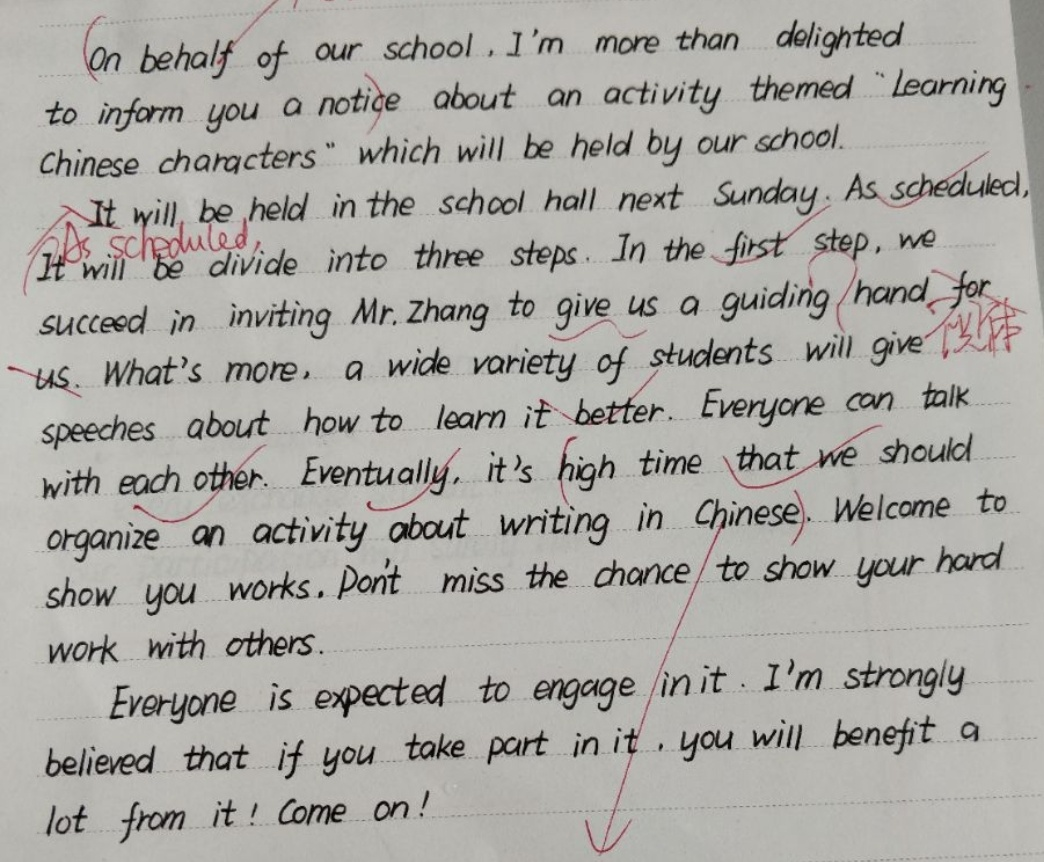 On behalf of our school, I'm more than delighted
to inform you a notice about an activity themed "Learning
Chinese characters" which will be held by our school.
It will be held in the school hall next Sunday. As scheduled,
As scheduled,
It will be divide into three steps. In the first step, we
succeed in inviting Mr. Zhang to give us a guiding hand for
us. What's more, a wide variety of students will give
speeches about how to learn it better. Everyone can talk
with each other. Eventually, it's high time that we should
organize an activity about writing in Chinese. Welcome to
show you works. Don't miss the chance to show your hard
work with others.
Everyone is expected to engage in it. I'm strongly
believed that if you take part in it, you will benefit a
lot from it! Come on!